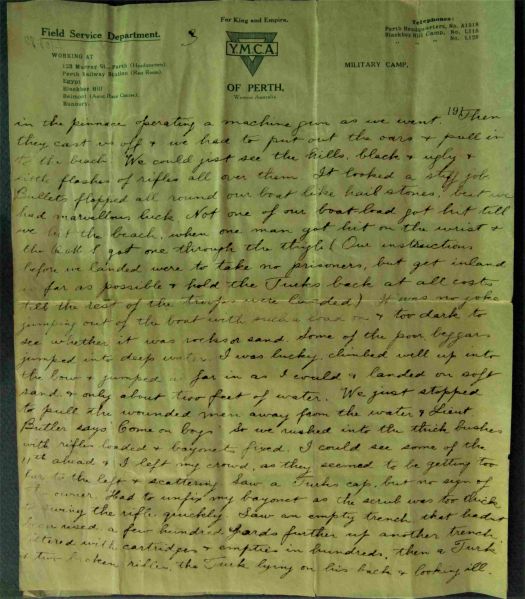 For King and Empire.
Field Service Department.
3
Telephones:
Perth Headquarters, No. A1218
Blackboy Hill Camp, No. L115
" " " No. L123
Y.M.C.A
WORKING AT
123 Murray St., Perth (Headquarters)
Perth Railway Station (Rest Room)
Egypt
Blackboy Hill
Belmont
Bunbury
OF PERTH,
Western Australia
MILITARY CAMP,
191
in the pinnace operating a machine gun as we went. Then
they cast us off & we had to put out the oars & pull in
to the beach. We could just see the hills, black & ugly &
with flashes of rifles all over them. It looked a stiff job.
Bullets flopped all round our boat like hail stones, but we
had marvellous luck. Not one of our boat-load got hit till
we hit the beach, when one man got hit on the wrist &
the I got one through the thigh. (Our instructions
before we landed were to take no prisoners, but get inland
as far as possible & hold the Turks back at all costs
till the rest of the troops were landed) It was no joke
jumping out of the boat with such a load on & too dark to
see whether it was rocks or sand. Some of the poor beggars
jumped into deep water. I was lucky, climbed well up into
the bow & jumped as far in as I could & landed on soft
sand, & only about two feet of water. We just stopped
to pull the wounded men away from the water & Lieut
Butler says "Come on boys" So we rushed into the thick bushes
with rifles loaded & bayonets fixed. I could see some of the
11th ahead & I left my crowd, as they seemed to be getting too
far to the left & scattering. Saw a Turks cap, but no sign of
owner. Had to unfix my bayonet as the scrub was too thick
to swing the rifle quickly. Saw an empty trench that hadnt
been used a few hundred yards further up another trench,
littered with cartridges & empties in hundreds, then a Turk
& two broken rifles, the Turk lying on his back & looking ill